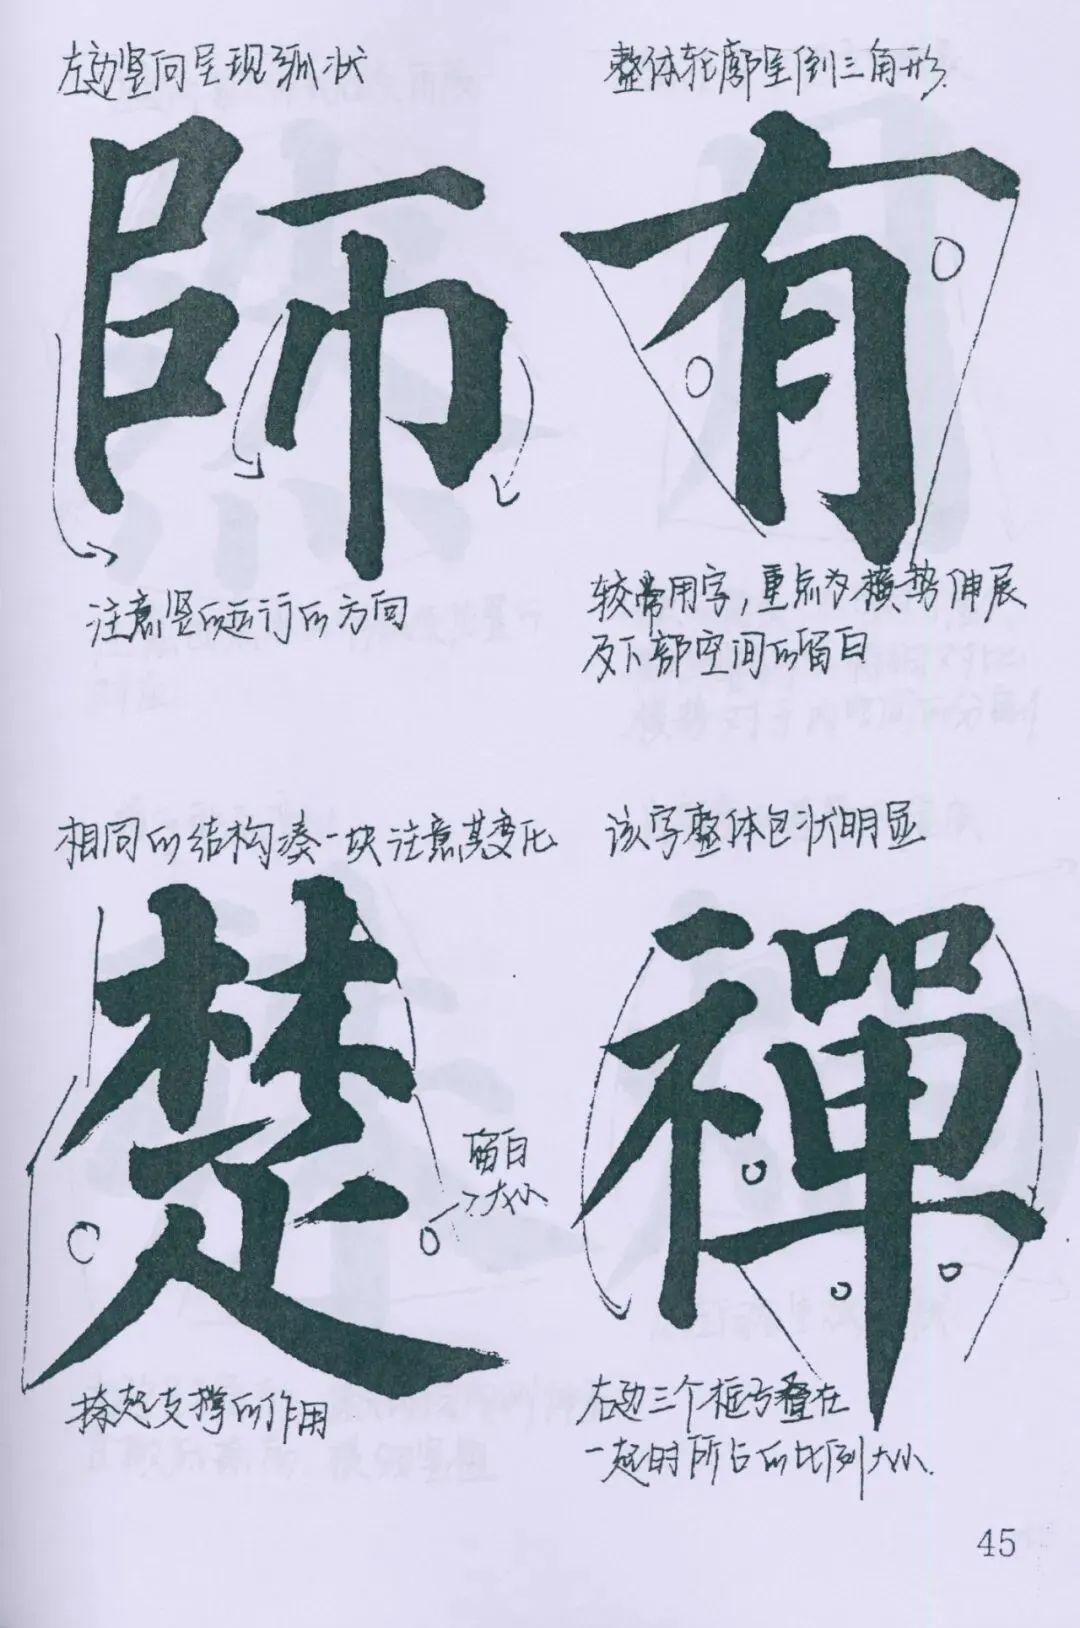 左边竖向呈现弧状
師
注意竖的运行的方向
整体轮廓呈倒三角形
有
较常用字，重点为横势伸展
及下部空间的留白
相同的结构凑一块注意其变化
楚
留白
大小
捺起支撑的作用
该字整体包状明显
禪
右边三个框与叠在
一起时所占的比列大小
45